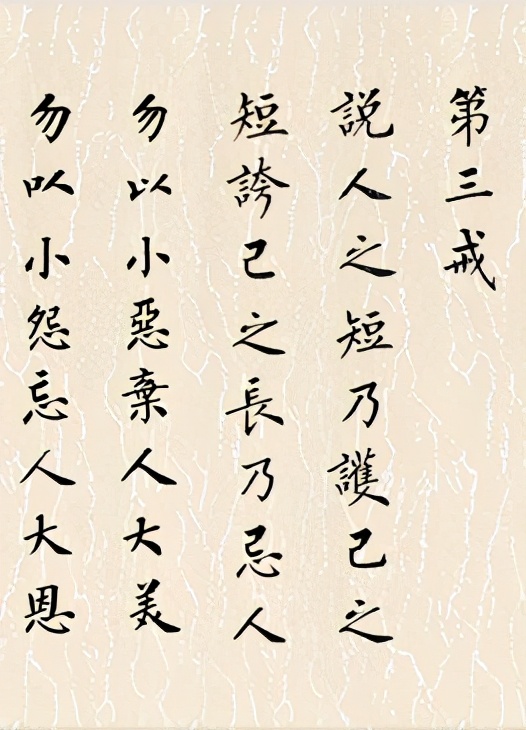 第三戒
説人之短乃護己之
短誇己之長乃忌人
勿以小惡棄人大美
勿以小怨忘人大恩